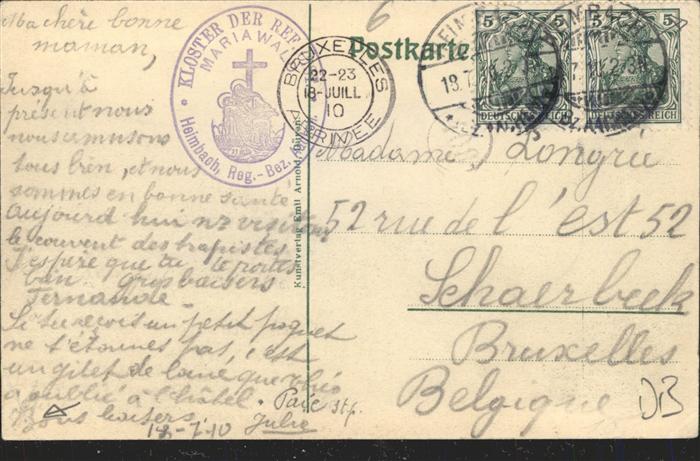 Ma chère bonne
maman,
Jusqu'à
présent nous
nous amusons
tous bien, et nous
sommes en bonne santé
Aujourd'hui nz visitons
le couvent des trapistes
J'espère que tu te portes
bien. Gros baisers
Fernande
Si tu reçois un petit paquet
ne t'étonnes pas, c'est
un gilet de laine que
a oublié à l'hôtel.
Bons baisers,
Julie
18-7-10
KLOSTER DER REF.
MARIAWALD
Heimbach, Reg.-Bez.
BRUXELLES
22-23
18-JUILL
10
ARRIVEE
Kunstverlag Emil Arnold
Postkarte
6
5 5
DEUTSCHES REICH
5 5
DEUTSCHES REICH
Madame Longrie
52 rue de l'est 52
Schaerbeek
Bruxelles
Belgique
DB